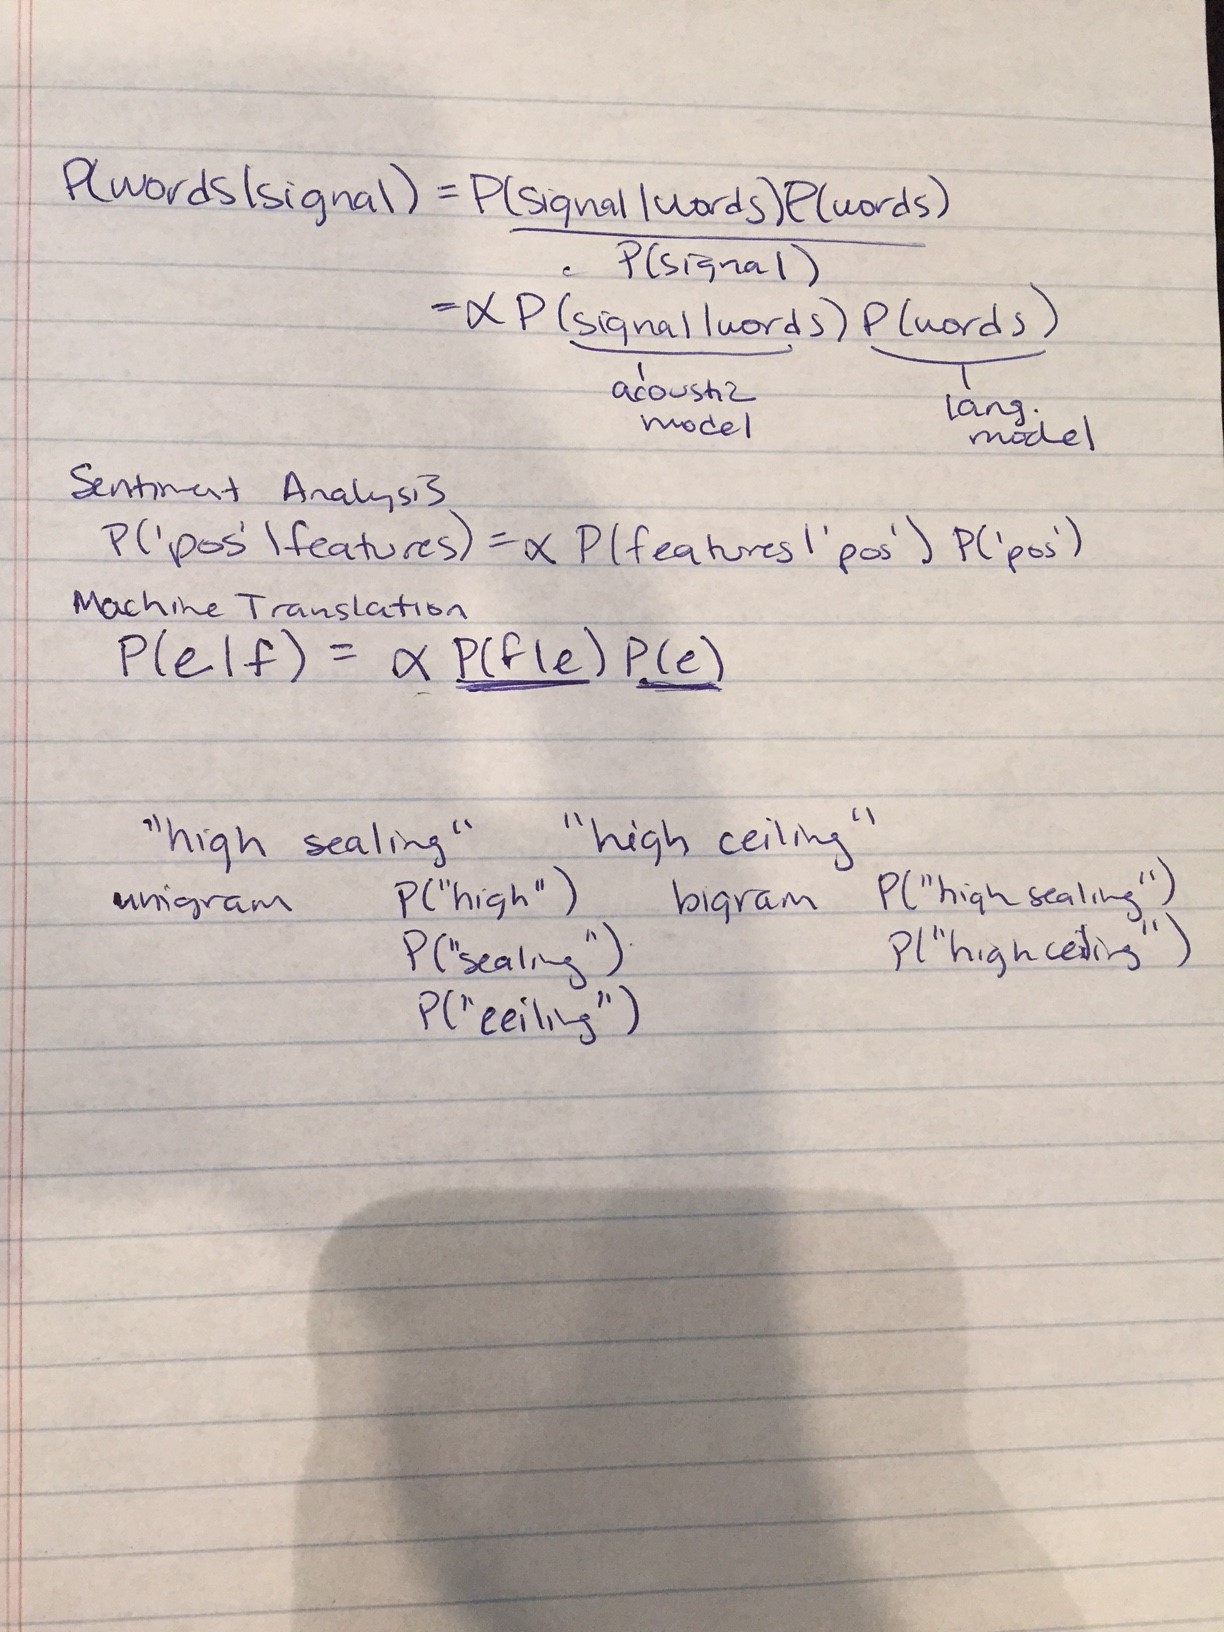 P(words|signal) = P(signal|words)P(words)
P(signal)
= α P(signal|words) P(words)
acoustic lang.
model model
Sentiment Analysis
P('pos'|features) = α P(features|'pos') P('pos')
Machine Translation
P(e|f) = α P(f|e) P(e)
"high sealing" "high ceiling"
unigram P("high") bigram P("high sealing")
P("sealing") P("high ceiling")
P("ceiling")